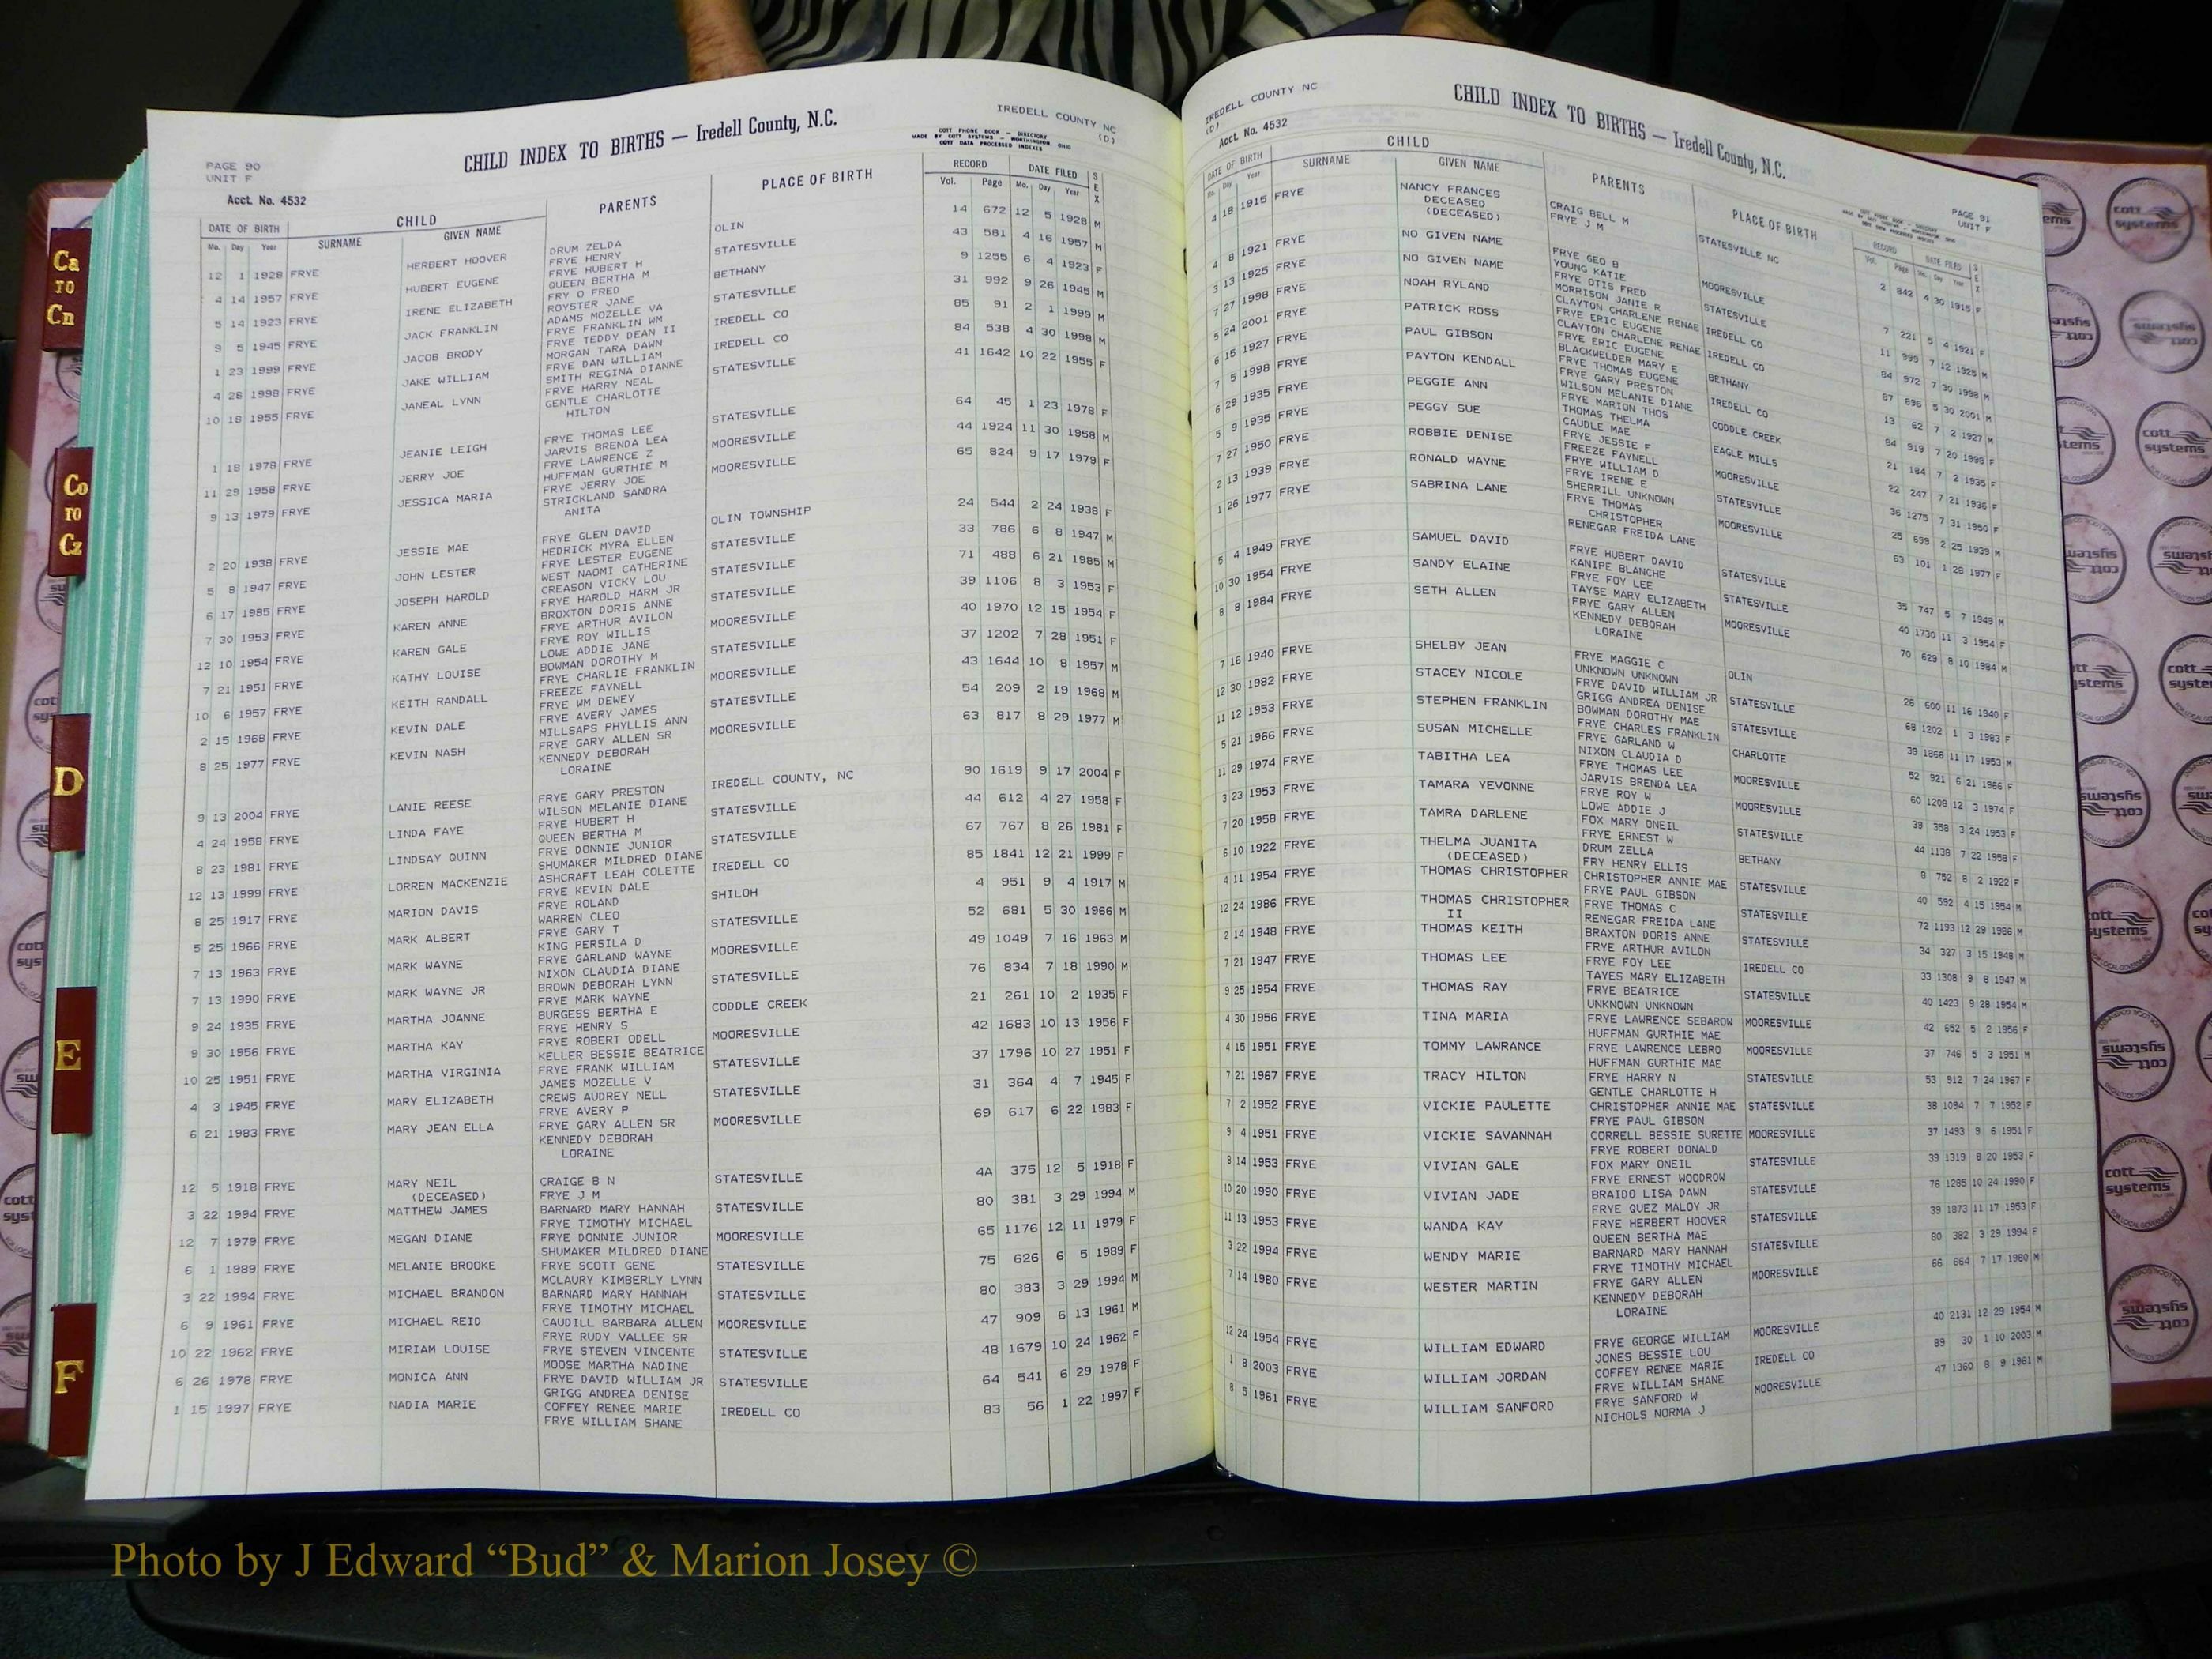 CHILD INDEX TO BIRTHS — Iredell County, N.C.
IREDELL COUNTY NC
(D)
COTT PHONE BOOK — DIRECTORY
MADE BY COTT SYSTEMS — WORTHINGTON, OHIO
COTT DATA PROCESSED INDEXES
PAGE 90
UNIT F
Acct. No. 4532
DATE OF BIRTH CHILD PARENTS PLACE OF BIRTH RECORD DATE FILED SEX
Mo. Day Year SURNAME GIVEN NAME Vol. Page Mo. Day Year
12 1 1928 FRYE HERBERT HOOVER DRUM ZELDA OLIN 14 672 12 5 1928 M
FRYE HENRY
4 14 1957 FRYE HUBERT EUGENE FRYE HUBERT H STATESVILLE 43 581 4 16 1957 M
QUEEN BERTHA M
5 14 1923 FRYE IRENE ELIZABETH FRY O FRED BETHANY 9 1255 6 4 1923 F
ROYSTER JANE
9 5 1945 FRYE JACK FRANKLIN ADAMS MOZELLE VA STATESVILLE 31 992 9 26 1945 M
FRYE FRANKLIN WM
1 23 1999 FRYE JACOB BRODY FRYE TEDDY DEAN II IREDELL CO 85 91 2 1 1999 M
MORGAN TARA DAWN
4 28 1998 FRYE JAKE WILLIAM FRYE DAN WILLIAM IREDELL CO 84 538 4 30 1998 M
SMITH REGINA DIANNE
10 18 1955 FRYE JANEAL LYNN FRYE HARRY NEAL STATESVILLE 41 1642 10 22 1955 F
GENTLE CHARLOTTE
HILTON
1 18 1978 FRYE JEANIE LEIGH FRYE THOMAS LEE STATESVILLE 64 45 1 23 1978 F
JARVIS BRENDA LEA
11 29 1958 FRYE JERRY JOE FRYE LAWRENCE Z MOORESVILLE 44 1924 11 30 1958 M
HUFFMAN GURTHIE M
9 13 1979 FRYE JESSICA MARIA FRYE JERRY JOE MOORESVILLE 65 824 9 17 1979 F
STRICKLAND SANDRA
ANITA
2 20 1938 FRYE JESSIE MAE FRYE GLEN DAVID OLIN TOWNSHIP 24 544 2 24 1938 F
HEDRICK MYRA ELLEN
5 8 1947 FRYE JOHN LESTER FRYE LESTER EUGENE STATESVILLE 33 786 6 8 1947 M
WEST NAOMI CATHERINE
6 17 1985 FRYE JOSEPH HAROLD CREASON VICKY LOU STATESVILLE 71 488 6 21 1985 M
FRYE HAROLD HARM JR
7 30 1953 FRYE KAREN ANNE BROXTON DORIS ANNE STATESVILLE 39 1106 8 3 1953 F
FRYE ARTHUR AVILON
12 10 1954 FRYE KAREN GALE FRYE ROY WILLIS MOORESVILLE 40 1970 12 15 1954 F
LOWE ADDIE JANE
7 21 1951 FRYE KATHY LOUISE BOWMAN DOROTHY M STATESVILLE 37 1202 7 28 1951 F
FRYE CHARLIE FRANKLIN
10 6 1957 FRYE KEITH RANDALL FREEZE FAYNELL MOORESVILLE 43 1644 10 8 1957 M
FRYE WM DEWEY
2 15 1968 FRYE KEVIN DALE FRYE AVERY JAMES STATESVILLE 54 209 2 19 1968 M
MILLSAPS PHYLLIS ANN
8 25 1977 FRYE KEVIN NASH FRYE GARY ALLEN SR MOORESVILLE 63 817 8 29 1977 M
KENNEDY DEBORAH
LORAINE
9 13 2004 FRYE LANIE REESE FRYE GARY PRESTON IREDELL COUNTY, NC 90 1619 9 17 2004 F
WILSON MELANIE DIANE
4 24 1958 FRYE LINDA FAYE FRYE HUBERT H STATESVILLE 44 612 4 27 1958 F
QUEEN BERTHA M
8 23 1981 FRYE LINDSAY QUINN FRYE DONNIE JUNIOR STATESVILLE 67 767 8 26 1981 F
SHUMAKER MILDRED DIANE
12 13 1999 FRYE LORREN MACKENZIE ASHCRAFT LEAH COLETTE IREDELL CO 85 1841 12 21 1999 F
FRYE KEVIN DALE
8 25 1917 FRYE MARION DAVIS FRYE ROLAND SHILOH 4 951 9 4 1917 M
WARREN CLEO
5 25 1966 FRYE MARK ALBERT FRYE GARY T STATESVILLE 52 681 5 30 1966 M
KING PERSILA D
7 13 1963 FRYE MARK WAYNE FRYE GARLAND WAYNE MOORESVILLE 49 1049 7 16 1963 M
NIXON CLAUDIA DIANE
7 13 1990 FRYE MARK WAYNE JR BROWN DEBORAH LYNN STATESVILLE 76 834 7 18 1990 M
FRYE MARK WAYNE
9 24 1935 FRYE MARTHA JOANNE BURGESS BERTHA E CODDLE CREEK 21 261 10 2 1935 F
FRYE HENRY S
9 30 1956 FRYE MARTHA KAY FRYE ROBERT ODELL MOORESVILLE 42 1683 10 13 1956 F
KELLER BESSIE BEATRICE
10 25 1951 FRYE MARTHA VIRGINIA FRYE FRANK WILLIAM STATESVILLE 37 1796 10 27 1951 F
JAMES MOZELLE V
4 3 1945 FRYE MARY ELIZABETH CREWS AUDREY NELL STATESVILLE 31 364 4 7 1945 F
FRYE AVERY P
6 21 1983 FRYE MARY JEAN ELLA FRYE GARY ALLEN SR MOORESVILLE 69 617 6 22 1983 F
KENNEDY DEBORAH
LORAINE
12 5 1918 FRYE MARY NEIL CRAIGE B N STATESVILLE 4A 375 12 5 1918 F
(DECEASED) FRYE J M
3 22 1994 FRYE MATTHEW JAMES BARNARD MARY HANNAH STATESVILLE 80 381 3 29 1994 M
FRYE TIMOTHY MICHAEL
12 7 1979 FRYE MEGAN DIANE FRYE DONNIE JUNIOR MOORESVILLE 65 1176 12 11 1979 F
SHUMAKER MILDRED DIANE
6 1 1989 FRYE MELANIE BROOKE FRYE SCOTT GENE STATESVILLE 75 626 6 5 1989 F
MCLAURY KIMBERLY LYNN
3 22 1994 FRYE MICHAEL BRANDON BARNARD MARY HANNAH STATESVILLE 80 383 3 29 1994 M
FRYE TIMOTHY MICHAEL
6 9 1961 FRYE MICHAEL REID CAUDILL BARBARA ALLEN MOORESVILLE 47 909 6 13 1961 M
FRYE RUDY VALLEE SR
10 22 1962 FRYE MIRIAM LOUISE FRYE STEVEN VINCENTE STATESVILLE 48 1679 10 24 1962 F
MOOSE MARTHA NADINE
6 26 1978 FRYE MONICA ANN FRYE DAVID WILLIAM JR STATESVILLE 64 541 6 29 1978 F
GRIGG ANDREA DENISE
1 15 1997 FRYE NADIA MARIE COFFEY RENEE MARIE IREDELL CO 83 56 1 22 1997 F
FRYE WILLIAM SHANE
IREDELL COUNTY NC
(D)
CHILD INDEX TO BIRTHS — Iredell County, N.C.
Acct. No. 4532
PAGE 91
UNIT F
DATE OF BIRTH CHILD PARENTS PLACE OF BIRTH RECORD DATE FILED SEX
Mo. Day Year SURNAME GIVEN NAME Vol. Page Mo. Day Year
4 18 1915 FRYE NANCY FRANCES CRAIG BELL M STATESVILLE NC 2 842 4 30 1915 F
DECEASED FRYE J M
(DECEASED)
4 8 1921 FRYE NO GIVEN NAME FRYE GEO B MOORESVILLE 7 221 5 4 1921 F
YOUNG KATIE
3 13 1925 FRYE NO GIVEN NAME FRYE OTIS FRED STATESVILLE 11 999 7 12 1925 M
MORRISON JANIE R
7 27 1998 FRYE NOAH RYLAND CLAYTON CHARLENE RENAE IREDELL CO 84 972 7 30 1998 M
FRYE ERIC EUGENE
5 24 2001 FRYE PATRICK ROSS CLAYTON CHARLENE RENAE IREDELL CO 87 896 5 30 2001 M
FRYE ERIC EUGENE
6 15 1927 FRYE PAUL GIBSON BLACKWELDER MARY E BETHANY 13 62 7 2 1927 M
FRYE THOMAS EUGENE
7 5 1998 FRYE PAYTON KENDALL FRYE GARY PRESTON IREDELL CO 84 919 7 20 1998 F
WILSON MELANIE DIANE
6 29 1935 FRYE PEGGIE ANN FRYE MARION THOS CODDLE CREEK 21 184 7 2 1935 F
THOMAS THELMA
5 9 1935 FRYE PEGGY SUE CAUDLE MAE EAGLE MILLS 22 247 7 21 1936 F
FRYE JESSIE F
7 27 1950 FRYE ROBBIE DENISE FREEZE FAYNELL MOORESVILLE 36 1275 7 31 1950 F
FRYE WILLIAM D
2 13 1939 FRYE RONALD WAYNE FRYE IRENE E STATESVILLE 25 699 2 25 1939 M
SHERRILL UNKNOWN
1 26 1977 FRYE SABRINA LANE FRYE THOMAS MOORESVILLE 63 101 1 28 1977 F
CHRISTOPHER
RENEGAR FREIDA LANE
5 4 1949 FRYE SAMUEL DAVID FRYE HUBERT DAVID STATESVILLE 35 747 5 7 1949 M
KANIPE BLANCHE
10 30 1954 FRYE SANDY ELAINE FRYE FOY LEE STATESVILLE 40 1730 11 3 1954 F
TAYSE MARY ELIZABETH
8 8 1984 FRYE SETH ALLEN FRYE GARY ALLEN MOORESVILLE 70 629 8 10 1984 M
KENNEDY DEBORAH
LORAINE
7 16 1940 FRYE SHELBY JEAN FRYE MAGGIE C OLIN 26 600 11 16 1940 F
UNKNOWN UNKNOWN
12 30 1982 FRYE STACEY NICOLE FRYE DAVID WILLIAM JR STATESVILLE 68 1202 1 3 1983 F
GRIGG ANDREA DENISE
11 12 1953 FRYE STEPHEN FRANKLIN BOWMAN DOROTHY MAE STATESVILLE 39 1866 11 17 1953 M
FRYE CHARLES FRANKLIN
5 21 1966 FRYE SUSAN MICHELLE FRYE GARLAND W CHARLOTTE 52 921 6 21 1966 F
NIXON CLAUDIA D
11 29 1974 FRYE TABITHA LEA FRYE THOMAS LEE MOORESVILLE 60 1208 12 3 1974 F
JARVIS BRENDA LEA
3 23 1953 FRYE TAMARA YEVONNE FRYE ROY W MOORESVILLE 39 358 3 24 1953 F
LOWE ADDIE J
7 20 1958 FRYE TAMRA DARLENE FOX MARY ONEIL STATESVILLE 44 1138 7 22 1958 F
FRYE ERNEST W
6 10 1922 FRYE THELMA JUANITA DRUM ZELLA BETHANY 8 752 8 2 1922 F
(DECEASED) FRY HENRY ELLIS
4 11 1954 FRYE THOMAS CHRISTOPHER CHRISTOPHER ANNIE MAE STATESVILLE 40 592 4 15 1954 M
FRYE PAUL GIBSON
12 24 1986 FRYE THOMAS CHRISTOPHER FRYE THOMAS C STATESVILLE 72 1193 12 29 1986 M
II RENEGAR FREIDA LANE
2 14 1948 FRYE THOMAS KEITH BRAXTON DORIS ANNE STATESVILLE 34 327 3 15 1948 M
FRYE ARTHUR AVILON
7 21 1947 FRYE THOMAS LEE FRYE FOY LEE IREDELL CO 33 1308 9 8 1947 M
TAYES MARY ELIZABETH
9 25 1954 FRYE THOMAS RAY FRYE BEATRICE STATESVILLE 40 1423 9 28 1954 M
UNKNOWN UNKNOWN
4 30 1956 FRYE TINA MARIA FRYE LAWRENCE SEBAROW MOORESVILLE 42 652 5 2 1956 F
HUFFMAN GURTHIE MAE
4 15 1951 FRYE TOMMY LAWRANCE FRYE LAWRENCE LEBRO MOORESVILLE 37 746 5 3 1951 M
HUFFMAN GURTHIE MAE
7 21 1967 FRYE TRACY HILTON FRYE HARRY N STATESVILLE 53 912 7 24 1967 F
GENTLE CHARLOTTE H
7 2 1952 FRYE VICKIE PAULETTE CHRISTOPHER ANNIE MAE STATESVILLE 38 1094 7 7 1952 F
FRYE PAUL GIBSON
9 4 1951 FRYE VICKIE SAVANNAH CORRELL BESSIE SURETTE MOORESVILLE 37 1493 9 6 1951 F
FRYE ROBERT DONALD
8 14 1953 FRYE VIVIAN GALE FOX MARY ONEIL STATESVILLE 39 1319 8 20 1953 F
FRYE ERNEST WOODROW
10 20 1990 FRYE VIVIAN JADE BRAIDO LISA DAWN STATESVILLE 76 1285 10 24 1990 F
FRYE QUEZ MALOY JR
11 13 1953 FRYE WANDA KAY FRYE HERBERT HOOVER STATESVILLE 39 1873 11 17 1953 F
QUEEN BERTHA MAE
3 22 1994 FRYE WENDY MARIE BARNARD MARY HANNAH STATESVILLE 80 382 3 29 1994 F
FRYE TIMOTHY MICHAEL
7 14 1980 FRYE WESTER MARTIN FRYE GARY ALLEN MOORESVILLE 66 664 7 17 1980 M
KENNEDY DEBORAH
LORAINE
12 24 1954 FRYE WILLIAM EDWARD FRYE GEORGE WILLIAM MOORESVILLE 40 2131 12 29 1954 M
JONES BESSIE LOU
1 8 2003 FRYE WILLIAM JORDAN COFFEY RENEE MARIE IREDELL CO 89 30 1 10 2003 M
FRYE WILLIAM SHANE
8 5 1961 FRYE WILLIAM SANFORD FRYE SANFORD W MOORESVILLE 47 1360 8 9 1961 M
NICHOLS NORMA J
Ca
TO
Cn
Co
TO
Cz
D
E
F
cott
systems
Photo by J Edward “Bud” & Marion Josey ©